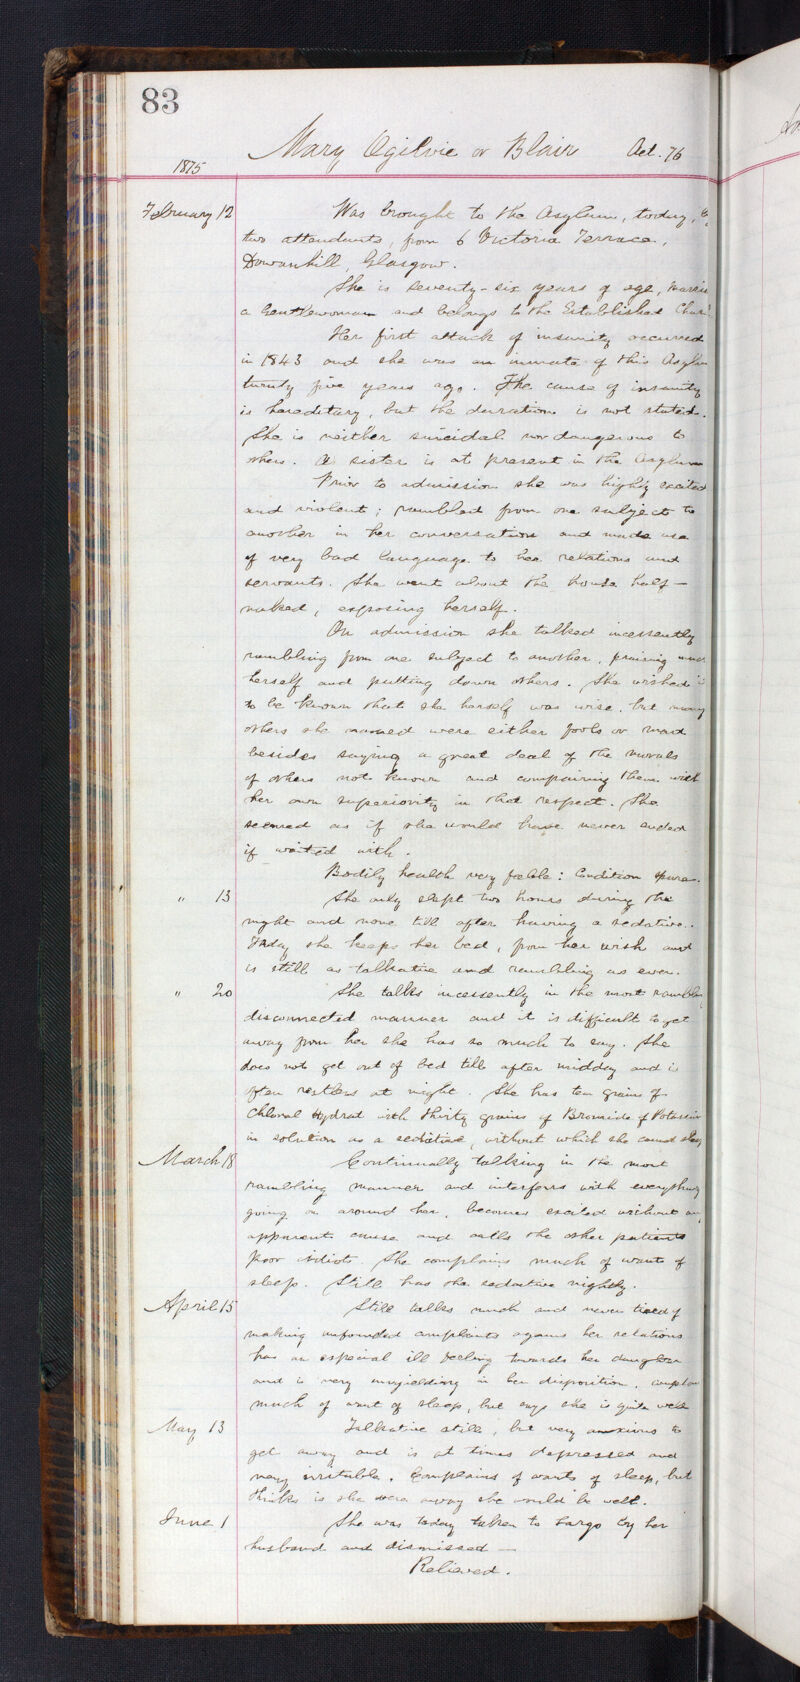 83
Mary Ogilvie or Blair Aet. 76
1875
February 12 Was brought to the Asylum, today, by
two attendants, from 6 Victoria Terrace,
Dowanhill, Glasgow.
She is seventy-six years of age, married
a Gentlewoman and belongs to the Established Church
Her first attack of insanity occurred
in 1843 and she was an inmate of this Asylum
twenty five years ago. The cause of insanity
is hereditary, but the duration is not stated.
She is neither suicidal nor dangerous to
others. A sister is at present in the Asylum
Prior to admission she was highly excited
and violent; rambled from one subject to
another in her conversation and made use
of very bad language to her relations and
servants. She went about the house half-
naked, exposing herself.
On admission she talked incessently
rambling from one subject to another, praising
herself and putting down others. She wished it
to be known that she herself was wise, but many
others she named were either fools or mad
besides saying a great deal of the morals
of others not known and compairing them with
her own superiority in that respect. She
seemed as if she would have never ended
if waited with.
Bodily health very feeble: Condition spare.
" 13 She only slept two hours during the
night and none till after having a sedative.
Today she keeps her bed, from her wish and
is still as talkative and rambling as ever.
" 20 She talks incessently in the most rambling
disconnected manner and it is difficult to get
away from her she has so much to say. She
does not get out of bed till after midday and is
often restless at night. She has ten grains of
Chloral Hydrat with thirty grains of Bromide of Potassium
in solution as a sedative, without which she cannot sleep
March 18 Continually talking in the most
rambling manner and interferrs with everything
going on around her, becomes excited without any
apparent cause and calls the other patients
poor idiots. She complains much of want of
sleep. Still has the sedative nightly.
April 15 Still talks much and never tired of
making unfounded complaints agains her relations
has an especial ill feeling towards her daughter
and is very unyielding in her disposition. complains
much of want of sleep, but says she is quite well
May 13 Talkative still, but very anxious to
get away and is at times depressed and
very irritable. Complains of wants of sleep, but
thinks is she were away she would be well.
June 1 She was today taken to Largo by her
husband and dismissed —
Relieved.